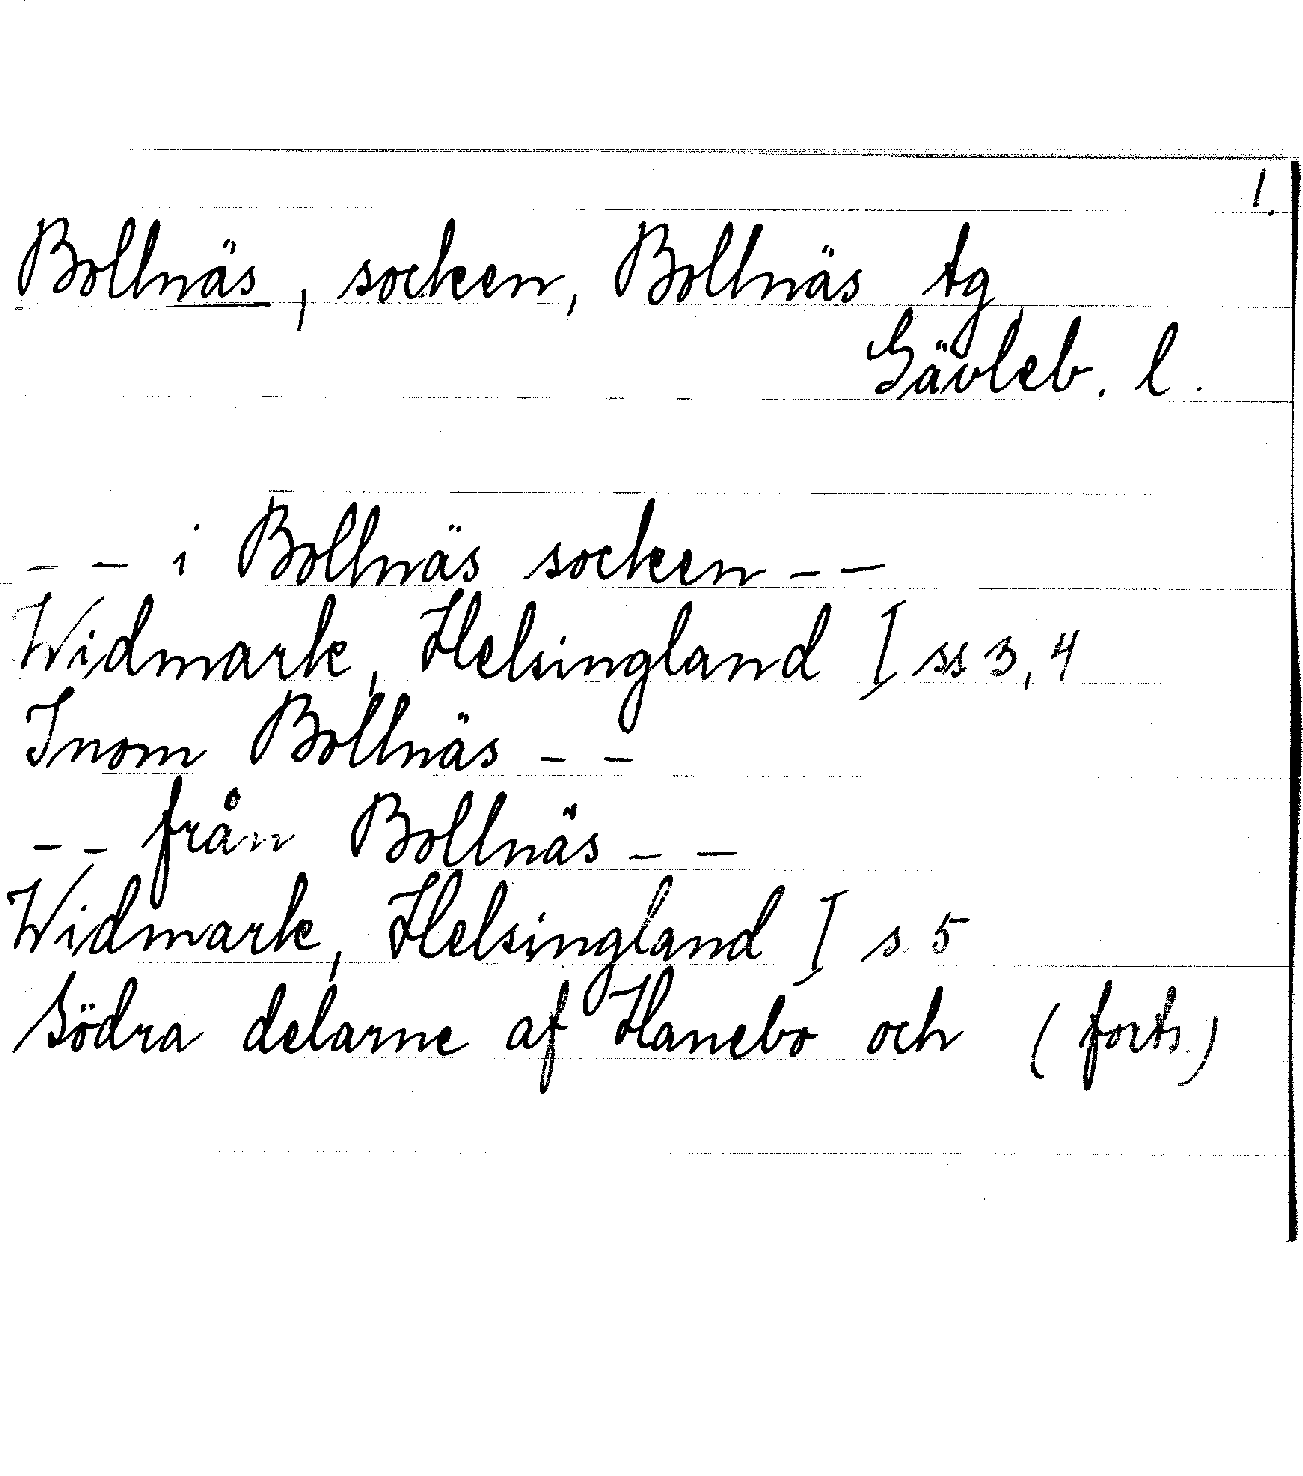 1.
Bollnäs, socken, Bollnäs tg
Gävleb. l.
_ _ i Bollnäs socken _ _
Widmark, Helsingland I ss 3, 4
Inom Bollnäs _ _
_ _ från Bollnäs _ _
Widmark, Helsingland I s 5
Södra delarne af Hanebo och (forts.)